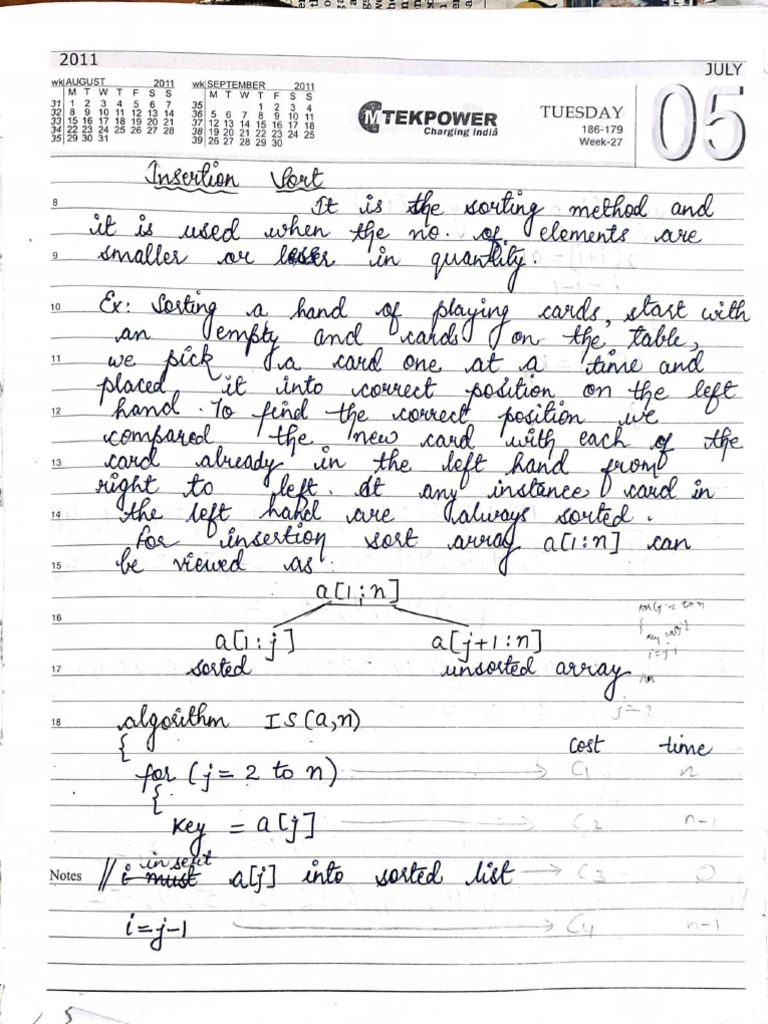 2011
JULY
wk AUGUST 2011
M T W T F S S
31 1 2 3 4 5 6 7
32 8 9 10 11 12 13 14
33 15 16 17 18 19 20 21
34 22 23 24 25 26 27 28
35 29 30 31
wk SEPTEMBER 2011
M T W T F S S
35 1 2 3 4
36 5 6 7 8 9 10 11
37 12 13 14 15 16 17 18
38 19 20 21 22 23 24 25
39 26 27 28 29 30
MTEKPOWER
Charging India
TUESDAY
186-179
Week-27
05
Insertion Sort
8 It is the sorting method and
it is used when the no. of elements are
9 smaller or lesser in quantity.
10 Ex: Sorting a hand of playing cards, start with
an empty and cards on the table,
11 we pick a card one at a time and
placed it into correct position on the left
12 hand. To find the correct position we
compared the new card with each of the
13 card already in the left hand from
right to left. At any instance card in
14 the left hand are always sorted.
For insertion sort array a[1:n] can
15 be viewed as.
a[1:n]
16
a[1:j] a[j+1:n]
17 sorted unsorted array
18 algorithm IS(a,n)
{ Cost time
for (j = 2 to n) C1 n
{
Key = a[j] C2 n-1
Notes // insert i must a[j] into sorted list C3 0
i=j-1 C4 n-1
5